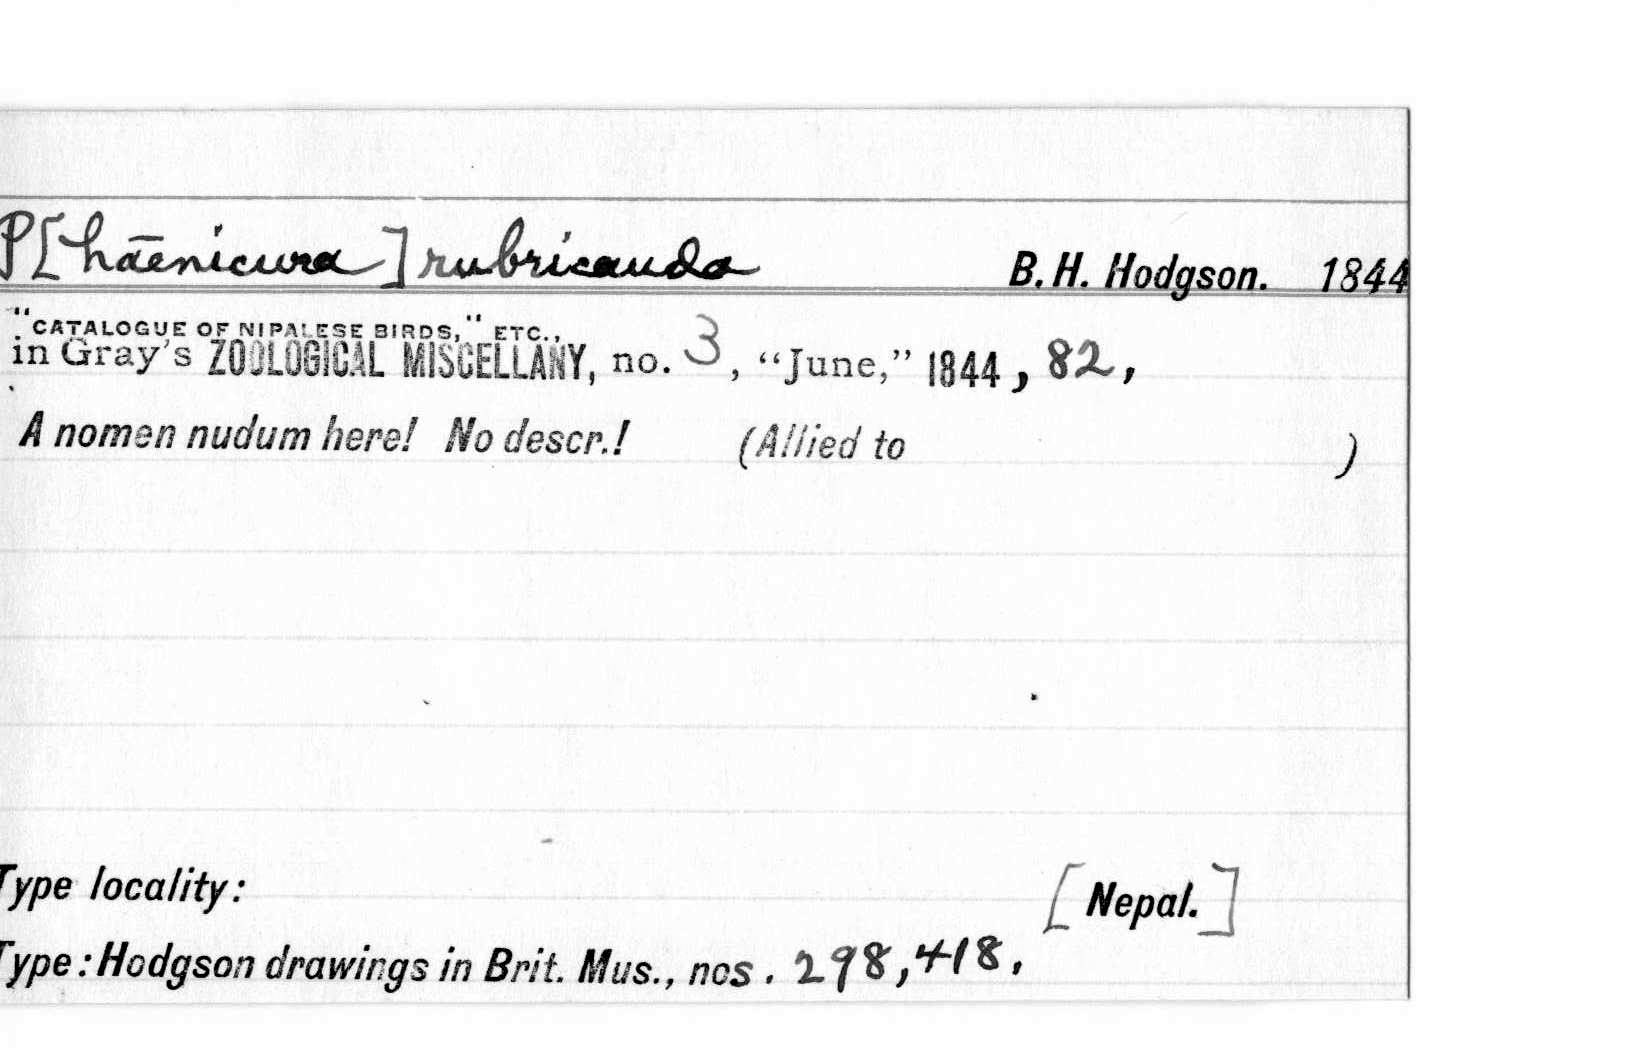 P[hāenicura] rubricauda B. H. Hodgson. 1844
"CATALOGUE OF NIPALESE BIRDS," ETC.,
in Gray's ZOOLOGICAL MISCELLANY, no. 3, “June,” 1844, 82,
A nomen nudum here! No descr.! (Allied to )
Type locality: [Nepal.]
Type: Hodgson drawings in Brit. Mus., nos. 298, 418,